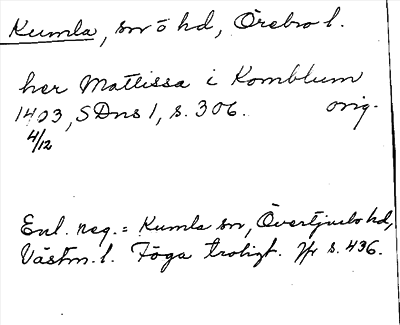 Kumla, sn o hd, Örebro l.
her Mattissa i Komblum
1403, SDns 1, s. 306. orig.
4/12
Enl. reg. = Kumla sn, Övertjurbo hd,
Västm. l. Föga troligt. Jfr s. 436.